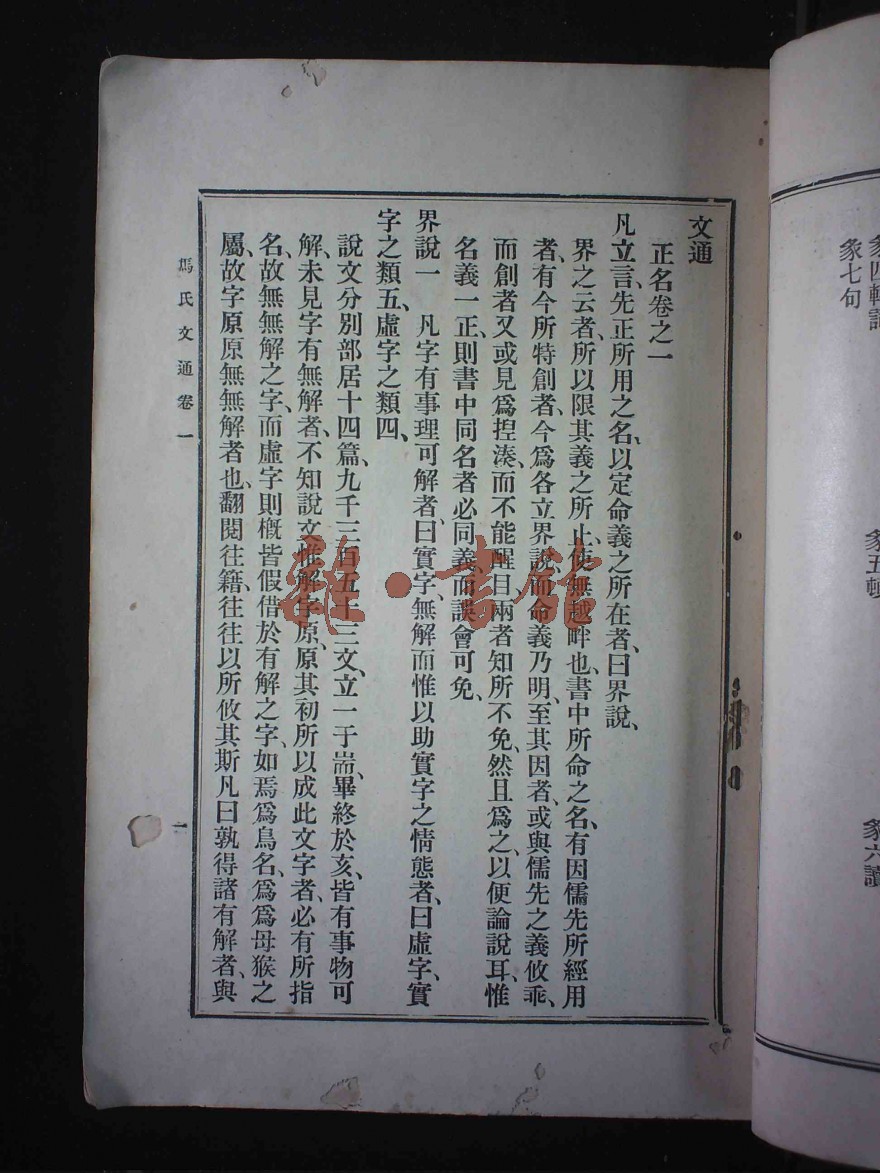 文通
正名卷之一
凡立言、先正所用之名、以定命義之所在者、曰界說、
界之云者、所以限其義之所止、使無越畔也、書中所命之名、有因儒先所經用
者、有今所特創者、今爲各立界說、而命義乃明、至其因者、或與儒先之義攸乖、
而創者又或見爲揑湊、而不能醒目、兩者知所不免、然且爲之、以便論說耳、惟
名義一正、則書中同名者必同義、而誤會可免、
界說一　凡字有事理可解者、曰實字、無解而惟以助實字之情態者、曰虛字、實
字之類五、虛字之類四、
說文分別部居十四篇、九千三百五十三文、立一于耑、畢終於亥、皆有事物可
解、未見字有無解者、不知說文惟解字原、原其初所以成此文字者、必有所指
名、故無無解之字、而虛字則槪皆假借於有解之字、如焉爲鳥名、爲爲母猴之
屬、故字原原無無解者也、翻閱往籍、往往以所攸其斯凡曰孰得諸有解者、與
馬氏文通卷一
一
象四轉詞
象七句
象五頓
象六讀
雜·書館